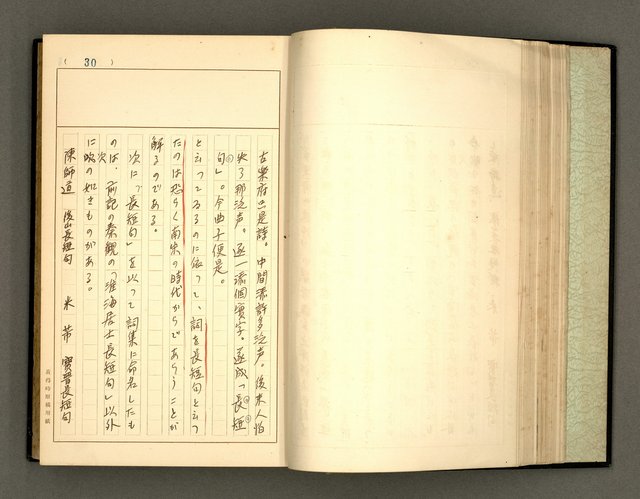 ( 30 )
古樂府只是詩。中間添許多泛声。後来人怕
失了那泛声。逐一添個實字。遂成「長短
句」。今曲子便是。
と云つてゐるのに依つて、詞を長短句と云つ
たのは恐らく南宋の時代からであらうことが
解るのである。
次に「長短句」を以つて詞集に命名したも
のは、前記の秦観の「淮海居士長短句」以外
に次の如きものがある。
陳師道 後山長短句 米芾 寶晋長短句
原稿用紙